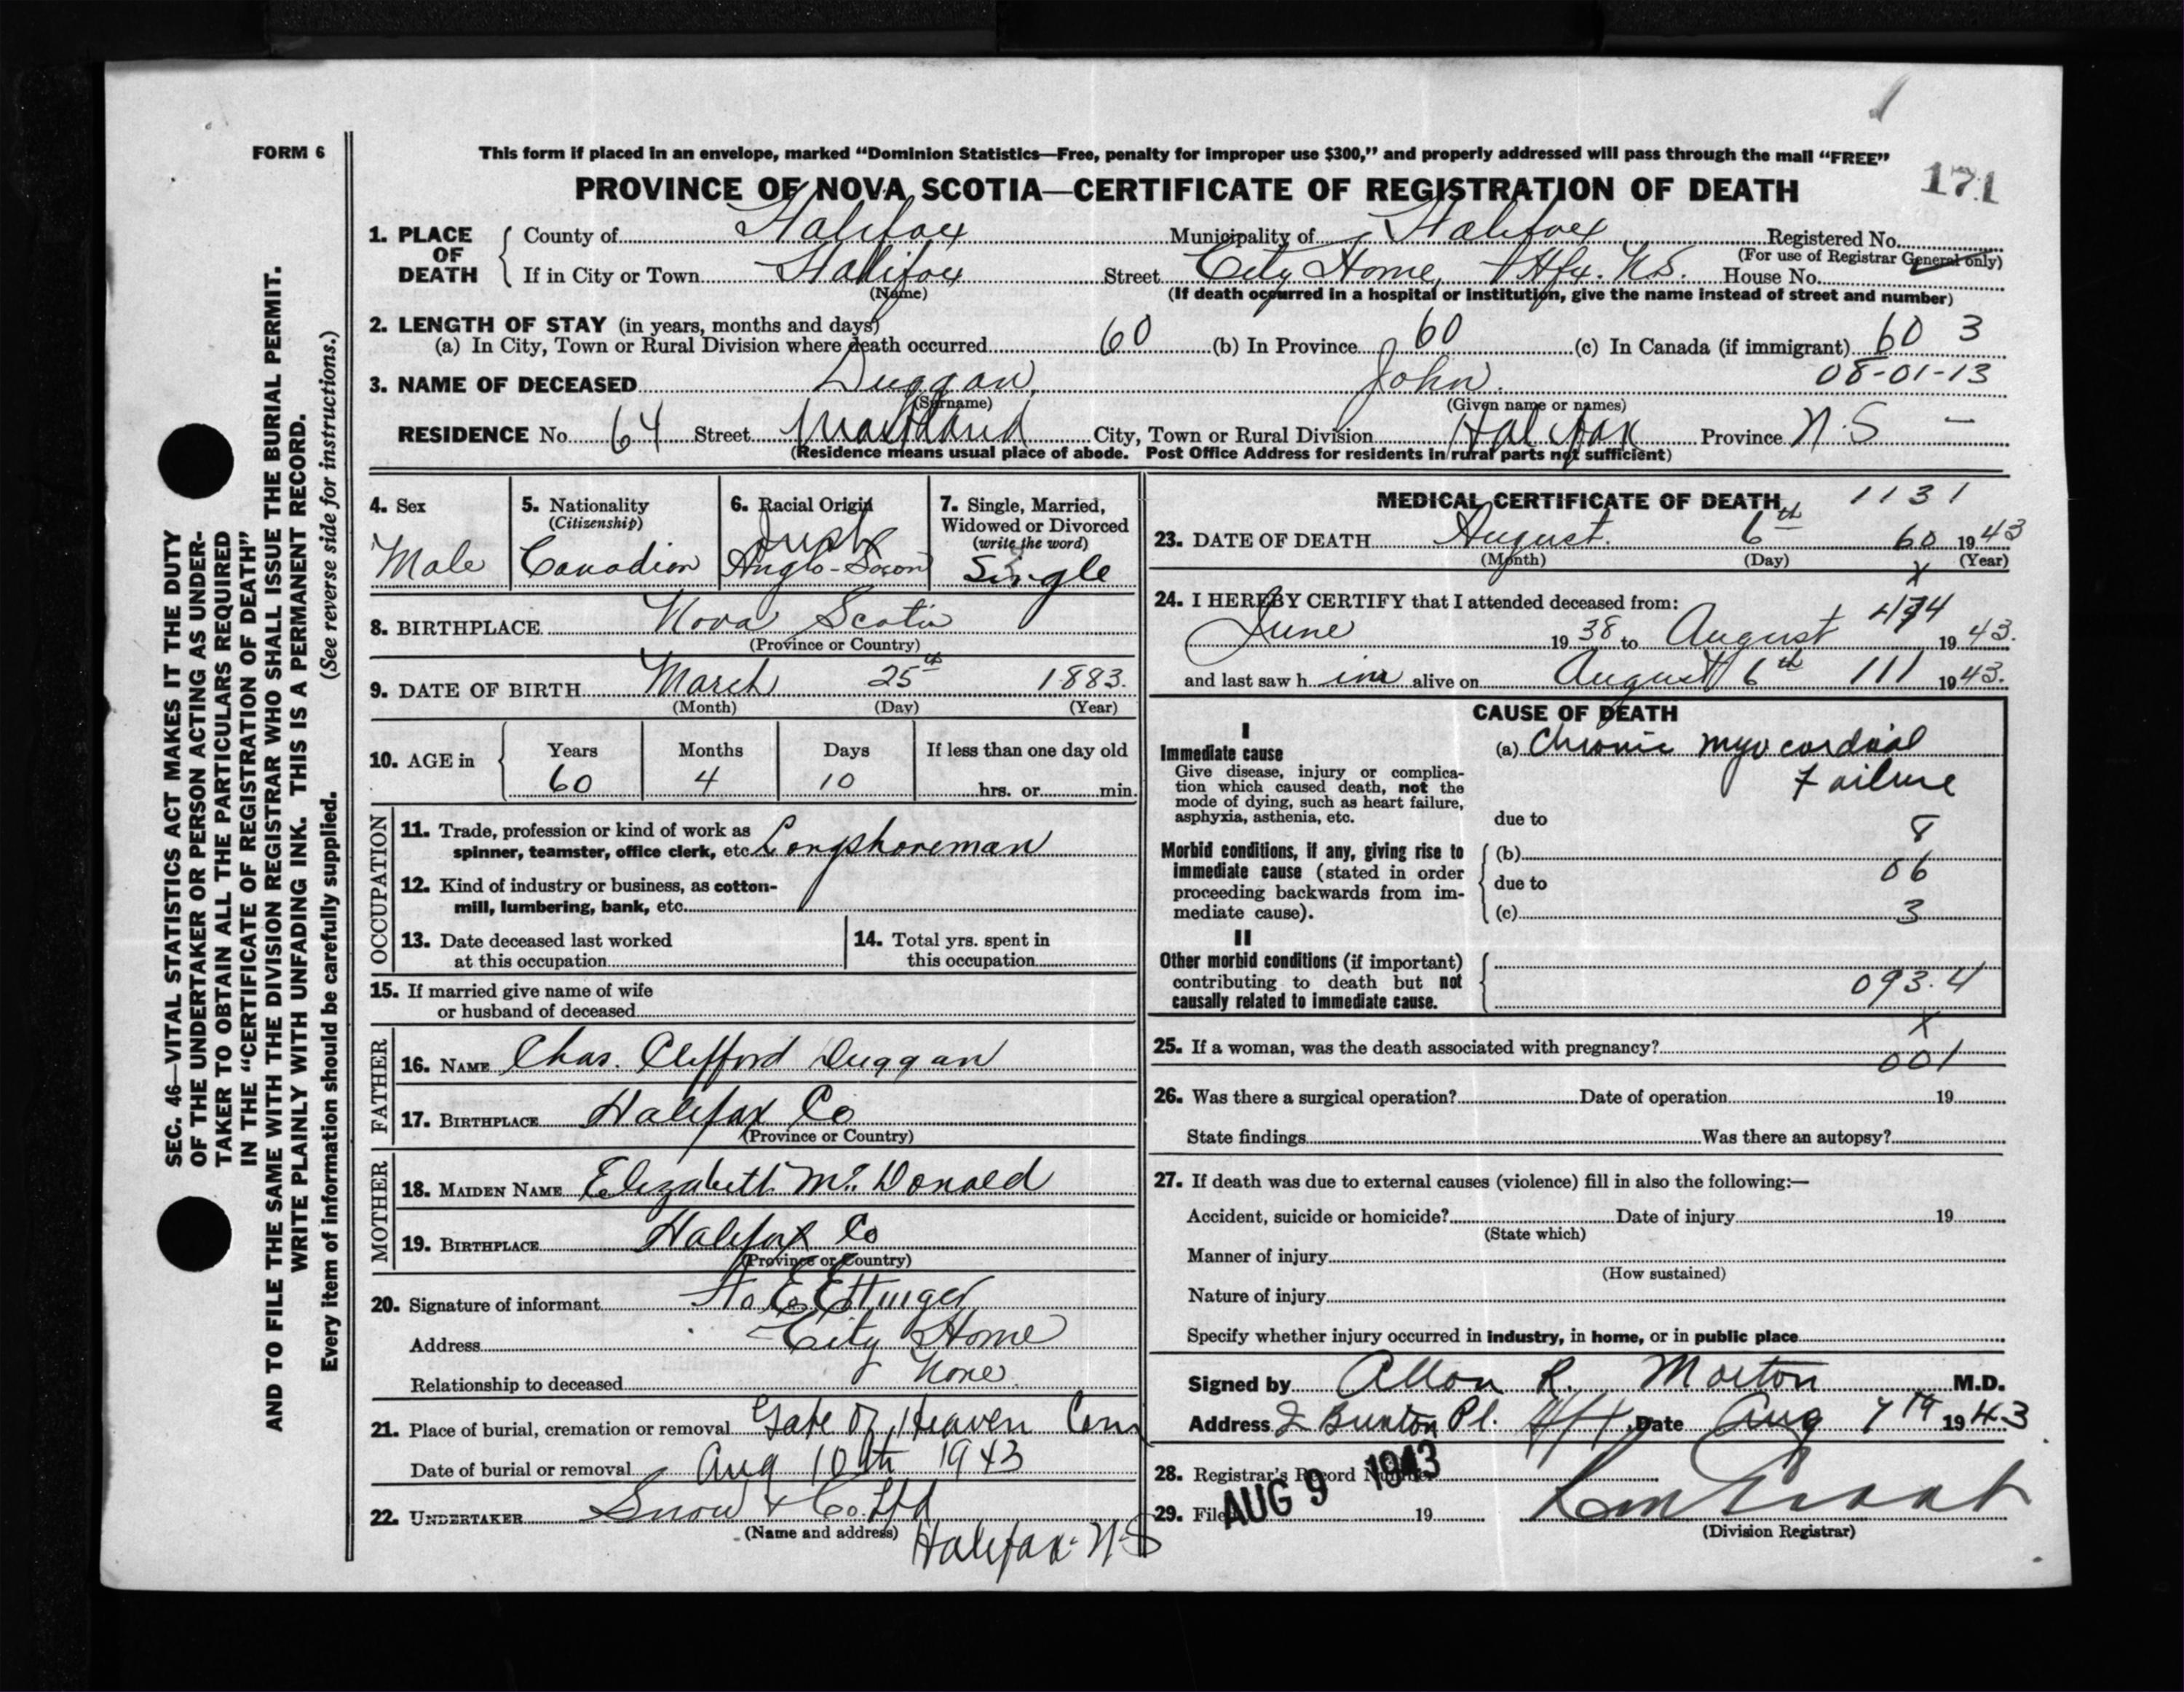 FORM 6
This form if placed in an envelope, marked "Dominion Statistics—Free, penalty for improper use $300," and properly addressed will pass through the mail "FREE"
PROVINCE OF NOVA SCOTIA—CERTIFICATE OF REGISTRATION OF DEATH
171
1. PLACE OF DEATH
County of Halifax Municipality of Halifax Registered No.
(For use of Registrar General only)
If in City or Town Halifax Street City Home, Hfx. N.S. House No.
(Name) (If death occurred in a hospital or institution, give the name instead of street and number)
2. LENGTH OF STAY (in years, months and days)
(a) In City, Town or Rural Division where death occurred 60 (b) In Province 60 (c) In Canada (if immigrant) 60 3
08-01-13
3. NAME OF DECEASED Duggan, John.
(Surname) (Given name or names)
RESIDENCE No. 64 Street Maitland City, Town or Rural Division Halifax Province N.S —
(Residence means usual place of abode. Post Office Address for residents in rural parts not sufficient)
SEC. 46—VITAL STATISTICS ACT MAKES IT THE DUTY
OF THE UNDERTAKER OR PERSON ACTING AS UNDER-
TAKER TO OBTAIN ALL THE PARTICULARS REQUIRED
IN THE "CERTIFICATE OF REGISTRATION OF DEATH"
AND TO FILE THE SAME WITH THE DIVISION REGISTRAR WHO SHALL ISSUE THE BURIAL PERMIT.
WRITE PLAINLY WITH UNFADING INK. THIS IS A PERMANENT RECORD.
Every item of information should be carefully supplied. (See reverse side for instructions.)
4. Sex
Male
5. Nationality
(Citizenship)
Canadian
6. Racial Origin
Irish
Anglo-Saxon
7. Single, Married,
Widowed or Divorced
(write the word)
Single
8. BIRTHPLACE Nova Scotia
(Province or Country)
9. DATE OF BIRTH March 25th 1883.
(Month) (Day) (Year)
10. AGE in
Years Months Days If less than one day old
60 4 10 hrs. or min.
OCCUPATION
11. Trade, profession or kind of work as
spinner, teamster, office clerk, etc. Longshoreman
12. Kind of industry or business, as cotton-
mill, lumbering, bank, etc.
13. Date deceased last worked
at this occupation
14. Total yrs. spent in
this occupation
15. If married give name of wife
or husband of deceased
FATHER
16. NAME Chas. Clifford Duggan
17. BIRTHPLACE Halifax Co
(Province or Country)
MOTHER
18. MAIDEN NAME Elizabeth McDonald
19. BIRTHPLACE Halifax Co
(Province or Country)
20. Signature of informant Ettinger
Address City Home
Relationship to deceased None.
21. Place of burial, cremation or removal Gate of Heaven Cem
Date of burial or removal Aug 10th 1943
22. UNDERTAKER Snow & Co. Ltd
(Name and address) Halifax N-S
MEDICAL CERTIFICATE OF DEATH 1131
23. DATE OF DEATH August. 6th 60 1943
(Month) (Day) (Year)
x
24. I HEREBY CERTIFY that I attended deceased from:
June 1938 to August 1943.
and last saw him alive on August 6th 111 1943.
CAUSE OF DEATH
I
Immediate cause
Give disease, injury or complica-
tion which caused death, not the
mode of dying, such as heart failure,
asphyxia, asthenia, etc.
(a) Chronic myocardial
Failure
due to
8
Morbid conditions, if any, giving rise to
immediate cause (stated in order
proceeding backwards from im-
mediate cause).
(b)
06
due to
(c) 3
II
Other morbid conditions (if important)
contributing to death but not
causally related to immediate cause.
093.4
x
25. If a woman, was the death associated with pregnancy?
001
26. Was there a surgical operation? Date of operation 19
State findings Was there an autopsy?
27. If death was due to external causes (violence) fill in also the following:—
Accident, suicide or homicide? Date of injury 19
(State which)
Manner of injury
(How sustained)
Nature of injury
Specify whether injury occurred in industry, in home, or in public place
Signed by Allan R. Morton M.D.
Address 2 Burton Pl. Hfx. Date Aug 7th 1943
28. Registrar's Record Number
29. Filed AUG 9 1943 19
(Division Registrar)